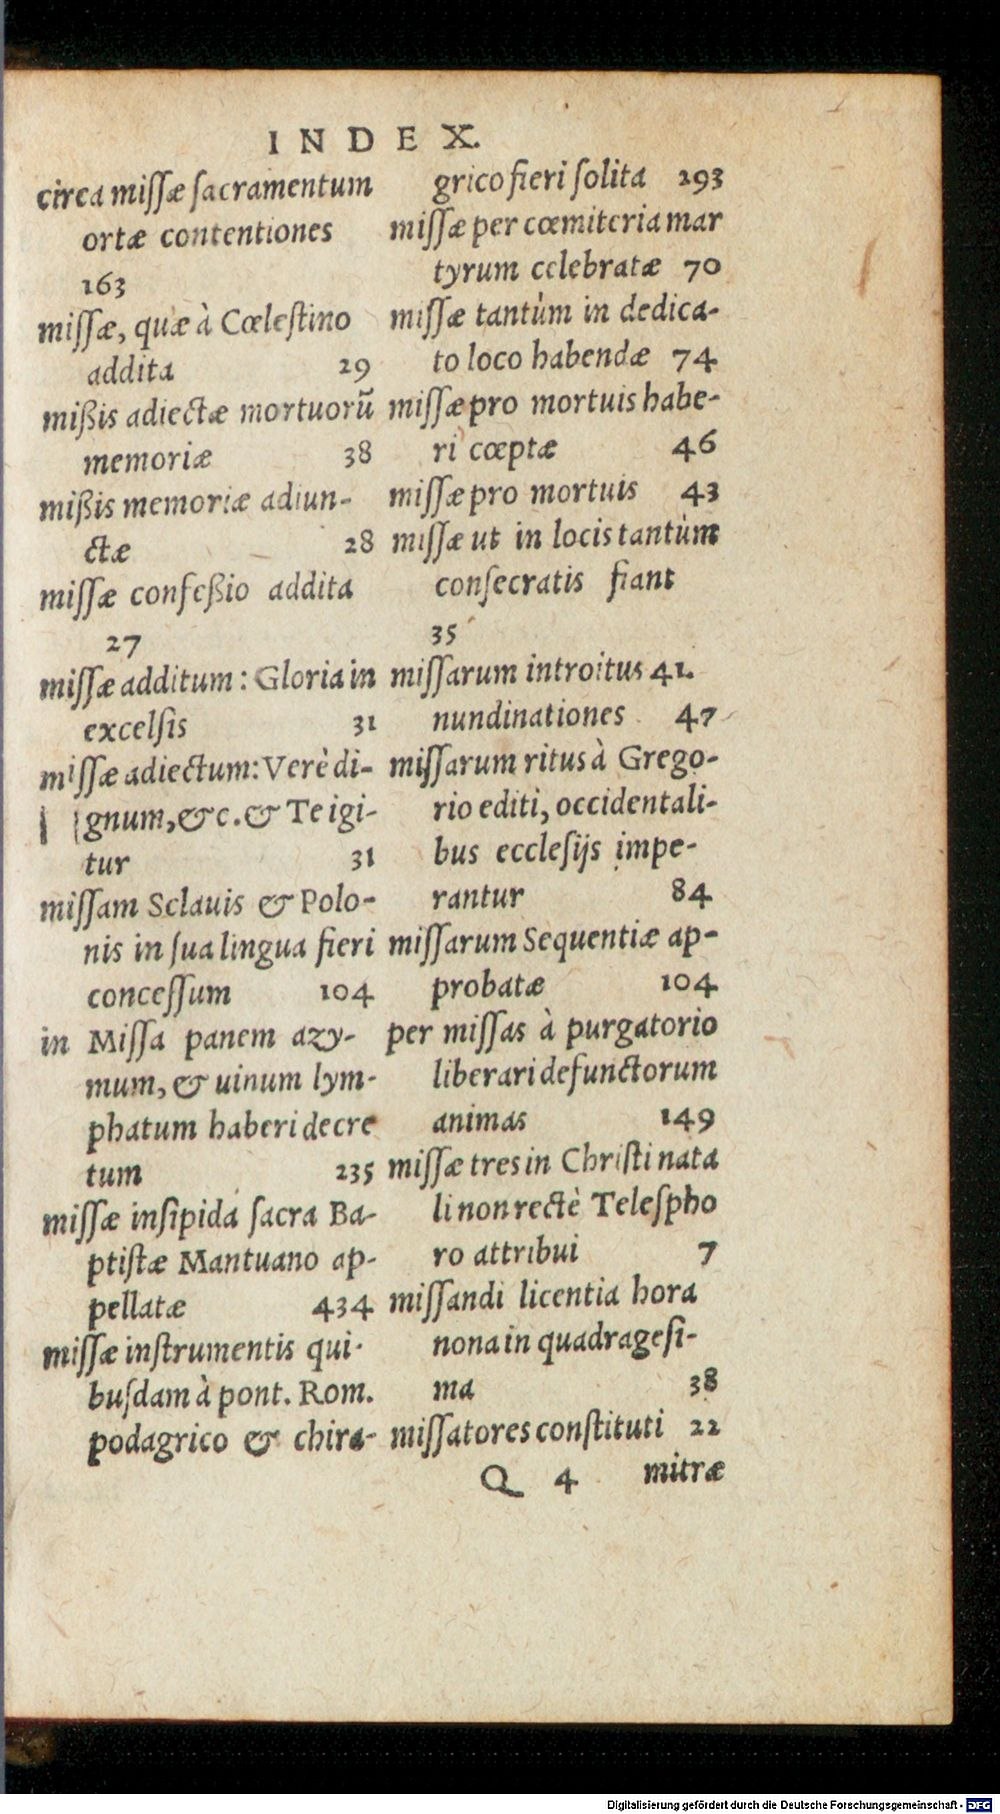 INDEX.
circa missæ sacramentum
ortæ contentiones
163
missæ, quæ à Cœlestino
addita 29
mißis adiectæ mortuorũ
memoriæ 38
mißis memoriæ adiun-
ctæ 28
missæ confeßio addita
27
missæ additum: Gloria in
excelsis 31
missæ adiectum: Verè di-
gnum, &c. & Te igi-
tur 31
missam Sclauis & Polo-
nis in sua lingua fieri
concessum 104
in Missa panem azy-
mum, & uinum lym-
phatum haberi decre
tum 235
missæ insipida sacra Ba-
ptistæ Mantuano ap-
pellatæ 434
missæ instrumentis qui-
busdam à pont. Rom.
podagrico & chira-
grico fieri solita 293
missæ per cœmiteria mar
tyrum celebratæ 70
missæ tantùm in dedica-
to loco habendæ 74
missæ pro mortuis habe-
ri cœptæ 46
missæ pro mortuis 43
missæ ut in locis tantùm
consecratis fiant
35
missarum introitus 41.
nundinationes 47
missarum ritus à Grego-
rio editi, occidentali-
bus ecclesijs impe-
rantur 84
missarum Sequentiæ ap-
probatæ 104
per missas à purgatorio
liberari defunctorum
animas 149
missæ tres in Christi nata
li non rectè Telespho
ro attribui 7
missandi licentia hora
nona in quadragesi-
ma 38
missatores constituti 22
Q 4 mitræ
Digitalisierung gefördert durch die Deutsche Forschungsgemeinschaft - DFG